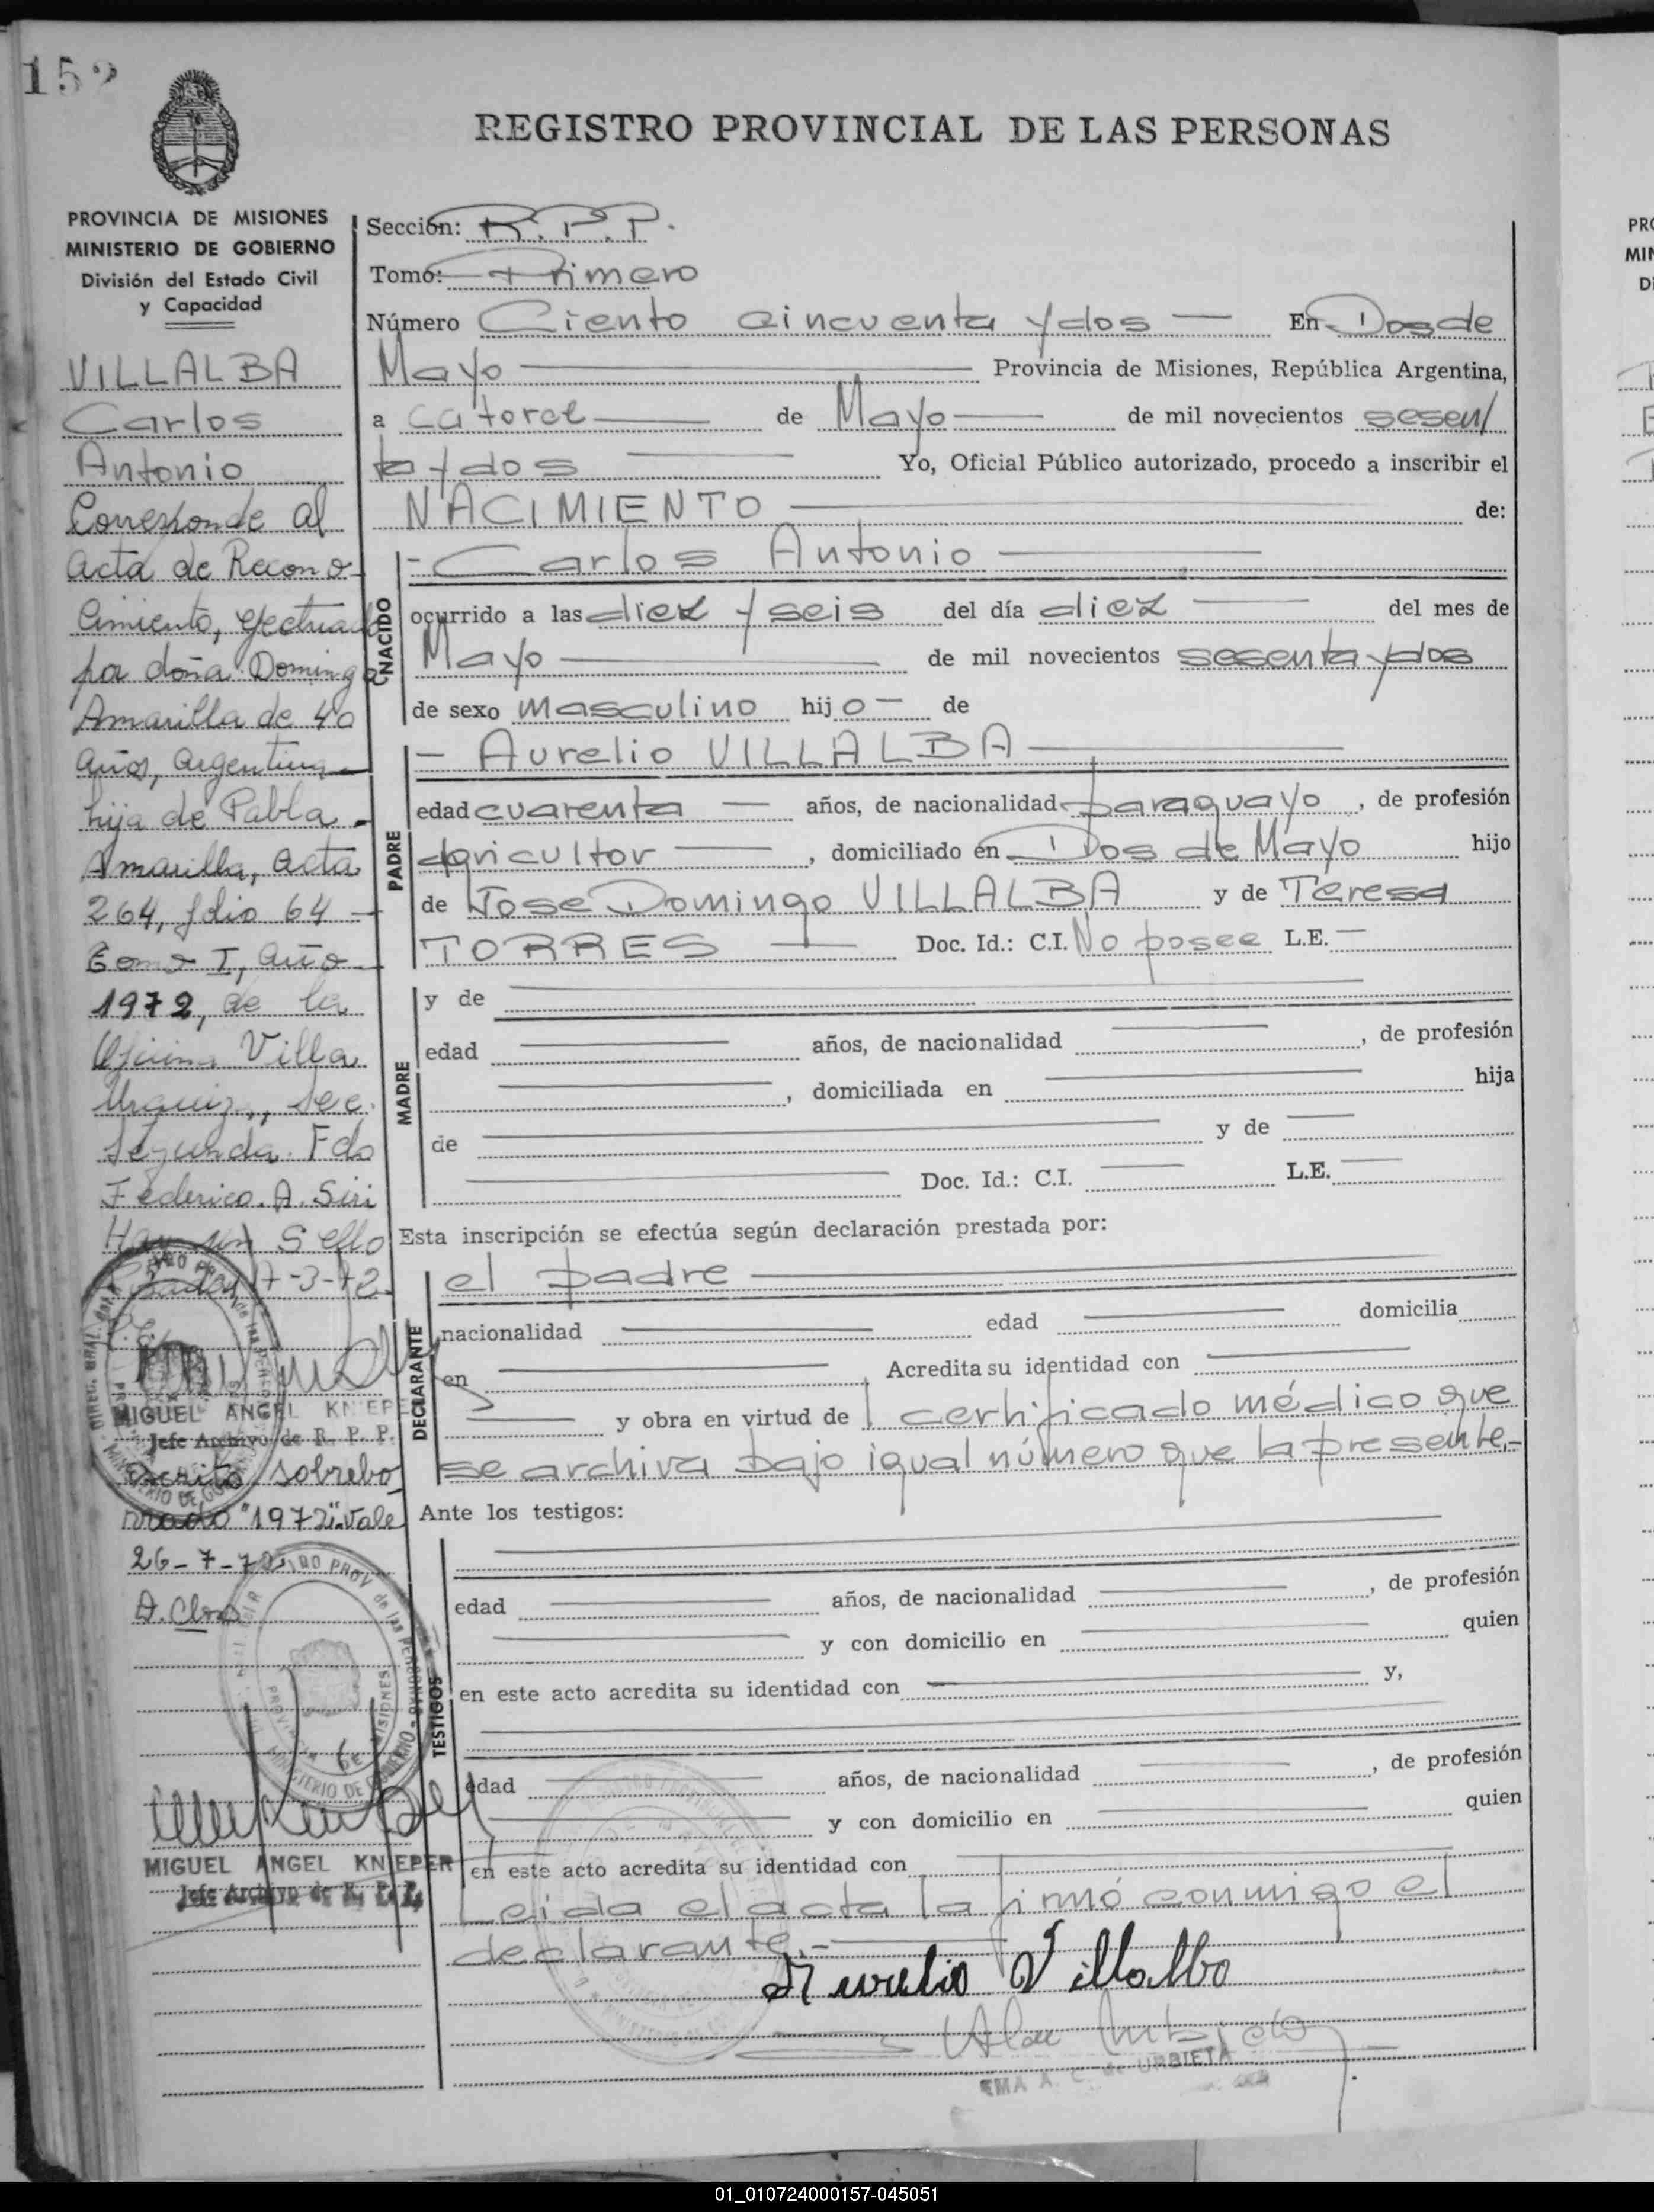 152
REGISTRO PROVINCIAL DE LAS PERSONAS
PROVINCIA DE MISIONES
MINISTERIO DE GOBIERNO
División del Estado Civil
y Capacidad
VILLALBA
Carlos
Antonio
Corresponde al
acta de Recono-
cimiento, efectuado
por doña Dominga
Amarilla de 40
años, argentina
hija de Pabla
Amarilla, acta
264, folio 64
Tomo I, año
1972, de la
Oficina Villa
Urquiza, Sec.
Segunda. Fdo
Federico. A. Siri
Hay un Sello
Posadas, 7-3-72
MIGUEL ANGEL KNIEPER
Jefe Archivo de R. P. P.
Escrito sobrebo
rrado "1972" Vale
26-7-72
MIGUEL ANGEL KNIEPER
Jefe Archivo de R. P. P.
Sección: R.P.P.
Tomo: Primero
Número Ciento cincuenta y dos — En Dos de
Mayo — Provincia de Misiones, República Argentina,
a catorce — de Mayo — de mil novecientos sesen/
ta y dos — Yo, Oficial Público autorizado, procedo a inscribir el
NACIMIENTO — de:
NACIDO
- Carlos Antonio —
ocurrido a las diez y seis del día diez — del mes de
Mayo — de mil novecientos sesenta y dos
de sexo masculino hijo — de
PADRE
- Aurelio VILLALBA —
edad cuarenta — años, de nacionalidad paraguayo, de profesión
agricultor —, domiciliado en Dos de Mayo hijo
de Jose Domingo VILLALBA y de Teresa
TORRES — Doc. Id.: C.I. No posee L.E. —
MADRE
y de —
edad — años, de nacionalidad —, de profesión
—, domiciliada en — hija
de — y de —
— Doc. Id.: C.I. — L.E. —
Esta inscripción se efectúa según declaración prestada por:
DECLARANTE
el padre —
nacionalidad — edad — domicilia
en — Acredita su identidad con —
— y obra en virtud de certificado médico que
se archiva bajo igual número que la presente.-
Ante los testigos:
TESTIGOS
edad — años, de nacionalidad —, de profesión
— y con domicilio en — quien
en este acto acredita su identidad con — y,
edad — años, de nacionalidad —, de profesión
— y con domicilio en — quien
en este acto acredita su identidad con —
Leida el acta la firmó conmigo el
declarante.- —
Aurelio Villalba
EMA A. C. de URBIETA
PRO
MIN
01_010724000157-045051